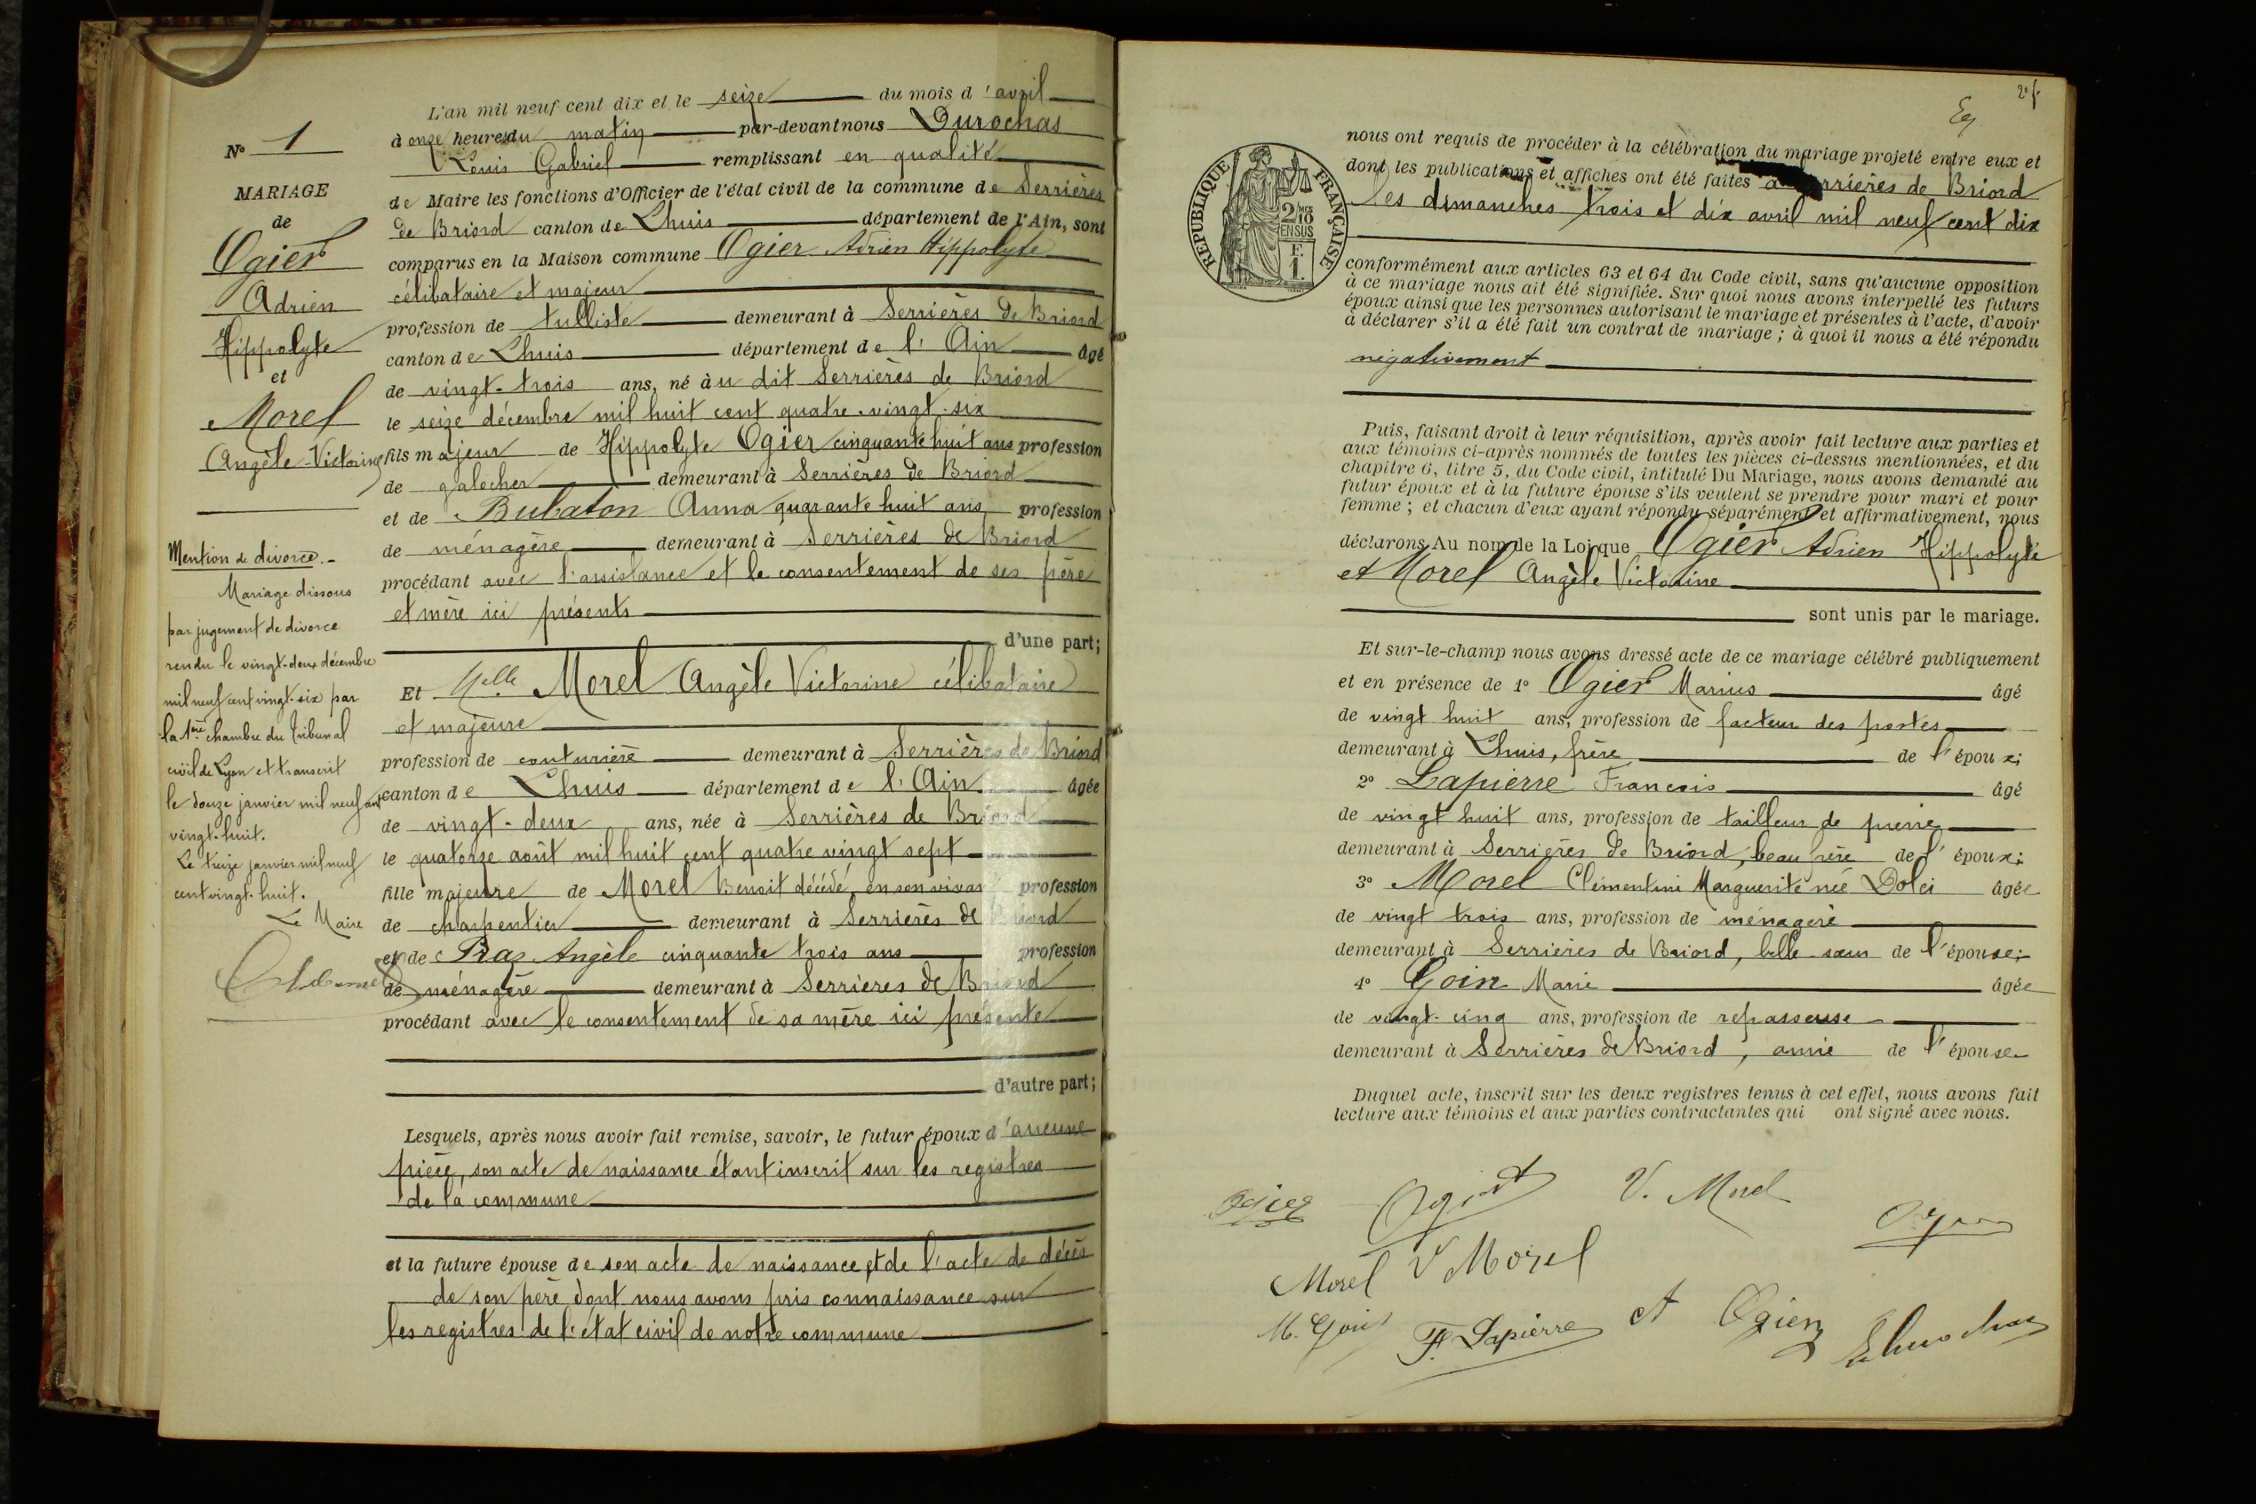 N° 1
MARIAGE
de
Ogier
Adrien
Hippolyte
et
Morel
Angèle-Victorine
Mention de divorce.-
Mariage dissous
par jugement de divorce
rendu le vingt-deux décembre
mil neuf cent vingt-six par
la 1ère chambre du Tribunal
civil de Lyon et transcrit
le douze janvier mil neuf cent
vingt-huit.
Le treize janvier mil neuf
cent vingt-huit.
Le Maire
L'an mil neuf cent dix et le seize du mois d'avril
à onze heures du matin par-devant nous Durochas
Louis Gabriel remplissant en qualité
de Maire les fonctions d'Officier de l'état civil de la commune de Serrières
de Briord canton de Lhuis département de l'Ain, sont
comparus en la Maison commune Ogier Adrien Hippolyte
célibataire et majeur
profession de tulliste demeurant à Serrières de Briord
canton de Lhuis département de l'Ain âgé
de vingt-trois ans, né àu dit Serrières de Briord
le seize décembre mil huit cent quatre-vingt-six
fils majeur de Hippolyte Ogier cinquante huit ans profession
de galocher demeurant à Serrières de Briord
et de Bubaton Anna quarante huit ans profession
de ménagère demeurant à Serrières de Briord
procédant avec l'assistance et le consentement de ses père
et mère ici présents
d'une part;
Et Melle Morel Angèle Victorine célibataire
et majeure
profession de couturière demeurant à Serrières de Briord
canton de Lhuis département de l'Ain âgée
de vingt-deux ans, née à Serrières de Briord
le quatorze août mil huit cent quatre vingt sept
fille majeure de Morel Benoit décédé, en son vivant profession
de charpentier demeurant à Serrières de Briord
et de Praz Angèle cinquante trois ans profession
de ménagère demeurant à Serrières de Briord
procédant avec le consentement de sa mère ici présente
d'autre part;
Lesquels, après nous avoir fait remise, savoir, le futur époux d'aucune
pièce, son acte de naissance étant inscrit sur les registres
de la commune
et la future épouse de son acte de naissance et de l'acte de décès
de son père dont nous avons pris connaissance sur
les registres de l'état civil de notre commune
2 f.
RÉPUBLIQUE FRANÇAISE
2/10 EN SUS
F. 1.
nous ont requis de procéder à la célébration du mariage projeté entre eux et
dont les publications et affiches ont été faites à Serrières de Briord
les dimanches trois et dix avril mil neuf cent dix
conformément aux articles 63 et 64 du Code civil, sans qu'aucune opposition
à ce mariage nous ait été signifiée. Sur quoi nous avons interpellé les futurs
époux ainsi que les personnes autorisant le mariage et présentes à l'acte, d'avoir
à déclarer s'il a été fait un contrat de mariage; à quoi il nous a été répondu
négativement
Puis, faisant droit à leur réquisition, après avoir fait lecture aux parties et
aux témoins ci-après nommés de toutes les pièces ci-dessus mentionnées, et du
chapitre 6, titre 5, du Code civil, intitulé Du Mariage, nous avons demandé au
futur époux et à la future épouse s'ils veulent se prendre pour mari et pour
femme; et chacun d'eux ayant répondu séparément et affirmativement, nous
déclarons Au nom de la Loi que Ogier Adrien Hippolyte
et Morel Angèle Victorine
sont unis par le mariage.
Et sur-le-champ nous avons dressé acte de ce mariage célébré publiquement
et en présence de 1° Ogier Marius âgé
de vingt huit ans, profession de facteur des postes
demeurant à Lhuis, frère de l'époux;
2° Lapierre François âgé
de vingt huit ans, profession de tailleur de pierre
demeurant à Serrières de Briord, beau frère de l'époux;
3° Morel Clémentine Marguerite née Dolci âgée
de vingt trois ans, profession de ménagère
demeurant à Serrières de Briord, belle-sœur de l'épouse;
4° Goin Marie âgée
de vingt-cinq ans, profession de repasseuse
demeurant à Serrières de Briord, amie de l'épouse
Duquel acte, inscrit sur les deux registres tenus à cet effet, nous avons fait
lecture aux témoins et aux parties contractantes qui ont signé avec nous.
Ogier Ogier V. Morel
Morel V Morel
M. Goin F. Lapierre A Ogier